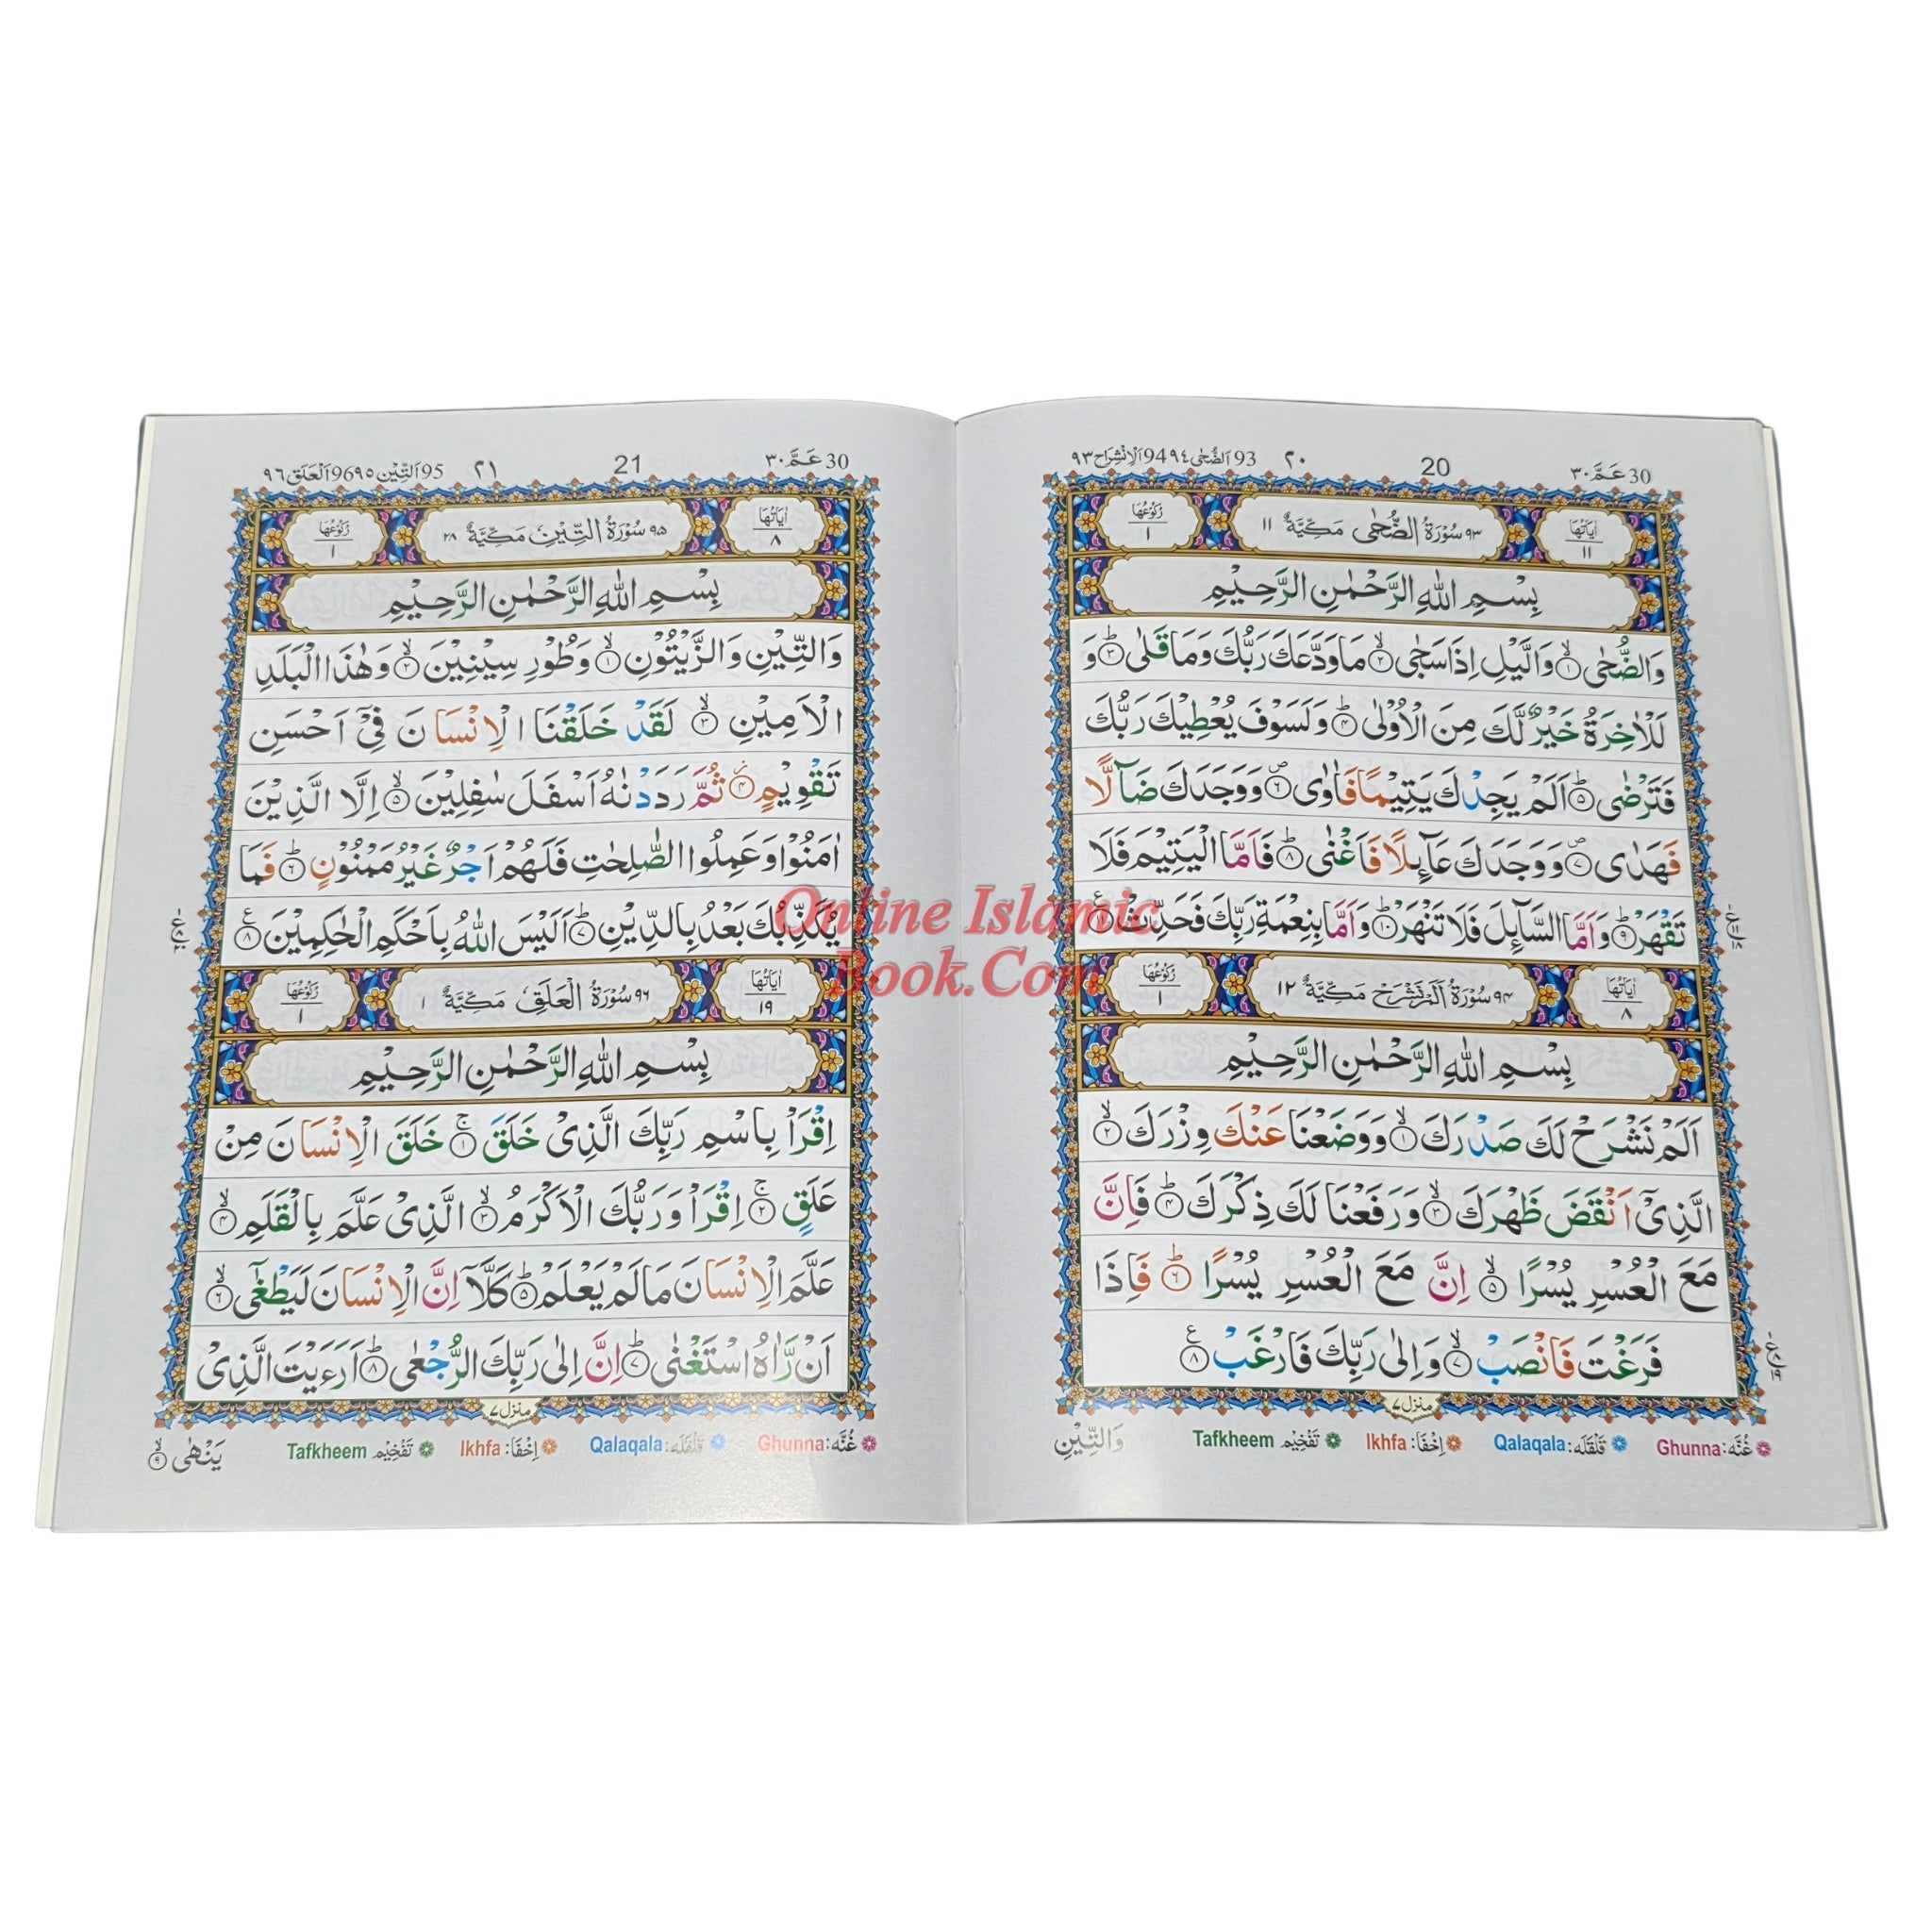 30 عَمَّ ٣٠
20
٢٠
93 اَلضُّحٰى ٩٤ 94 اَلْاِنْشِرَاح ٩٣
اٰيَاتُهَا ١١
٩٣ سُوْرَةُ الضُّحٰى مَكِّيَّةٌ ١١
رُكُوْعُهَا ١
بِسْمِ اللّٰهِ الرَّحْمٰنِ الرَّحِيْمِ
وَالضُّحٰى ۙ﴿١﴾ وَالَّيْلِ اِذَا سَجٰى ۙ﴿٢﴾ مَا وَدَّعَكَ رَبُّكَ وَمَا قَلٰى ؕ﴿٣﴾ وَ
لَلْاٰخِرَةُ خَيْرٌ لَّكَ مِنَ الْاُوْلٰى ؕ﴿٤﴾ وَلَسَوْفَ يُعْطِيْكَ رَبُّكَ
فَتَرْضٰى ؕ﴿٥﴾ اَلَمْ يَجِدْكَ يَتِيْمًا فَاٰوٰى ۪﴿٦﴾ وَوَجَدَكَ ضَآلًّا
فَهَدٰى ۪﴿٧﴾ وَوَجَدَكَ عَآئِلًا فَاَغْنٰى ؕ﴿٨﴾ فَاَمَّا الْيَتِيْمَ فَلَا
تَقْهَرْ ؕ﴿٩﴾ وَاَمَّا السَّآئِلَ فَلَا تَنْهَرْ ؕ﴿١٠﴾ وَاَمَّا بِنِعْمَةِ رَبِّكَ فَحَدِّثْ ﴿١١﴾
اٰيَاتُهَا ٨
٩٤ سُوْرَةُ اَلَمْ نَشْرَحْ مَكِّيَّةٌ ١٢
رُكُوْعُهَا ١
بِسْمِ اللّٰهِ الرَّحْمٰنِ الرَّحِيْمِ
اَلَمْ نَشْرَحْ لَكَ صَدْرَكَ ۙ﴿١﴾ وَوَضَعْنَا عَنْكَ وِزْرَكَ ۙ﴿٢﴾
الَّذِيْٓ اَنْقَضَ ظَهْرَكَ ۙ﴿٣﴾ وَرَفَعْنَا لَكَ ذِكْرَكَ ؕ﴿٤﴾ فَاِنَّ
مَعَ الْعُسْرِ يُسْرًا ۙ﴿٥﴾ اِنَّ مَعَ الْعُسْرِ يُسْرًا ؕ﴿٦﴾ فَاِذَا
فَرَغْتَ فَانْصَبْ ۙ﴿٧﴾ وَاِلٰى رَبِّكَ فَارْغَبْ ﴿٨﴾
منزل ٧
Ghunna: غُنَّه Qalaqala: قَلْقَلَه Ikhfa: اِخْفَا Tafkheem تَفْخِيْم
وَالتِّيْنِ
30 عَمَّ ٣٠
21
٢١
95 اَلتِّيْن ٩٥ 96 اَلْعَلَق ٩٦
اٰيَاتُهَا ٨
٩٥ سُوْرَةُ التِّيْنِ مَكِّيَّةٌ ٢٨
رُكُوْعُهَا ١
بِسْمِ اللّٰهِ الرَّحْمٰنِ الرَّحِيْمِ
وَالتِّيْنِ وَالزَّيْتُوْنِ ۙ﴿١﴾ وَطُوْرِ سِيْنِيْنَ ۙ﴿٢﴾ وَهٰذَا الْبَلَدِ
الْاَمِيْنِ ۙ﴿٣﴾ لَقَدْ خَلَقْنَا الْاِنْسَانَ فِيْٓ اَحْسَنِ
تَقْوِيْمٍ ؗ﴿٤﴾ ثُمَّ رَدَدْنٰهُ اَسْفَلَ سٰفِلِيْنَ ۙ﴿٥﴾ اِلَّا الَّذِيْنَ
اٰمَنُوْا وَعَمِلُوا الصّٰلِحٰتِ فَلَهُمْ اَجْرٌ غَيْرُ مَمْنُوْنٍ ؕ﴿٦﴾ فَمَا
يُكَذِّبُكَ بَعْدُ بِالدِّيْنِ ؕ﴿٧﴾ اَلَيْسَ اللّٰهُ بِاَحْكَمِ الْحٰكِمِيْنَ ﴿٨﴾
اٰيَاتُهَا ١٩
٩٦ سُوْرَةُ الْعَلَقِ مَكِّيَّةٌ ١
رُكُوْعُهَا ١
بِسْمِ اللّٰهِ الرَّحْمٰنِ الرَّحِيْمِ
اِقْرَاْ بِاسْمِ رَبِّكَ الَّذِيْ خَلَقَ ۚ﴿١﴾ خَلَقَ الْاِنْسَانَ مِنْ
عَلَقٍ ۚ﴿٢﴾ اِقْرَاْ وَرَبُّكَ الْاَكْرَمُ ۙ﴿٣﴾ الَّذِيْ عَلَّمَ بِالْقَلَمِ ۙ﴿٤﴾
عَلَّمَ الْاِنْسَانَ مَا لَمْ يَعْلَمْ ؕ﴿٥﴾ كَلَّآ اِنَّ الْاِنْسَانَ لَيَطْغٰٓى ۙ﴿٦﴾
اَنْ رَّاٰهُ اسْتَغْنٰى ؕ﴿٧﴾ اِنَّ اِلٰى رَبِّكَ الرُّجْعٰى ؕ﴿٨﴾ اَرَءَيْتَ الَّذِيْ
منزل ٧
Ghunna: غُنَّه Qalaqala: قَلْقَلَه Ikhfa: اِخْفَا Tafkheem تَفْخِيْم
يَنْهٰى ۙ﴿٩﴾
Online Islamic
Book.Com